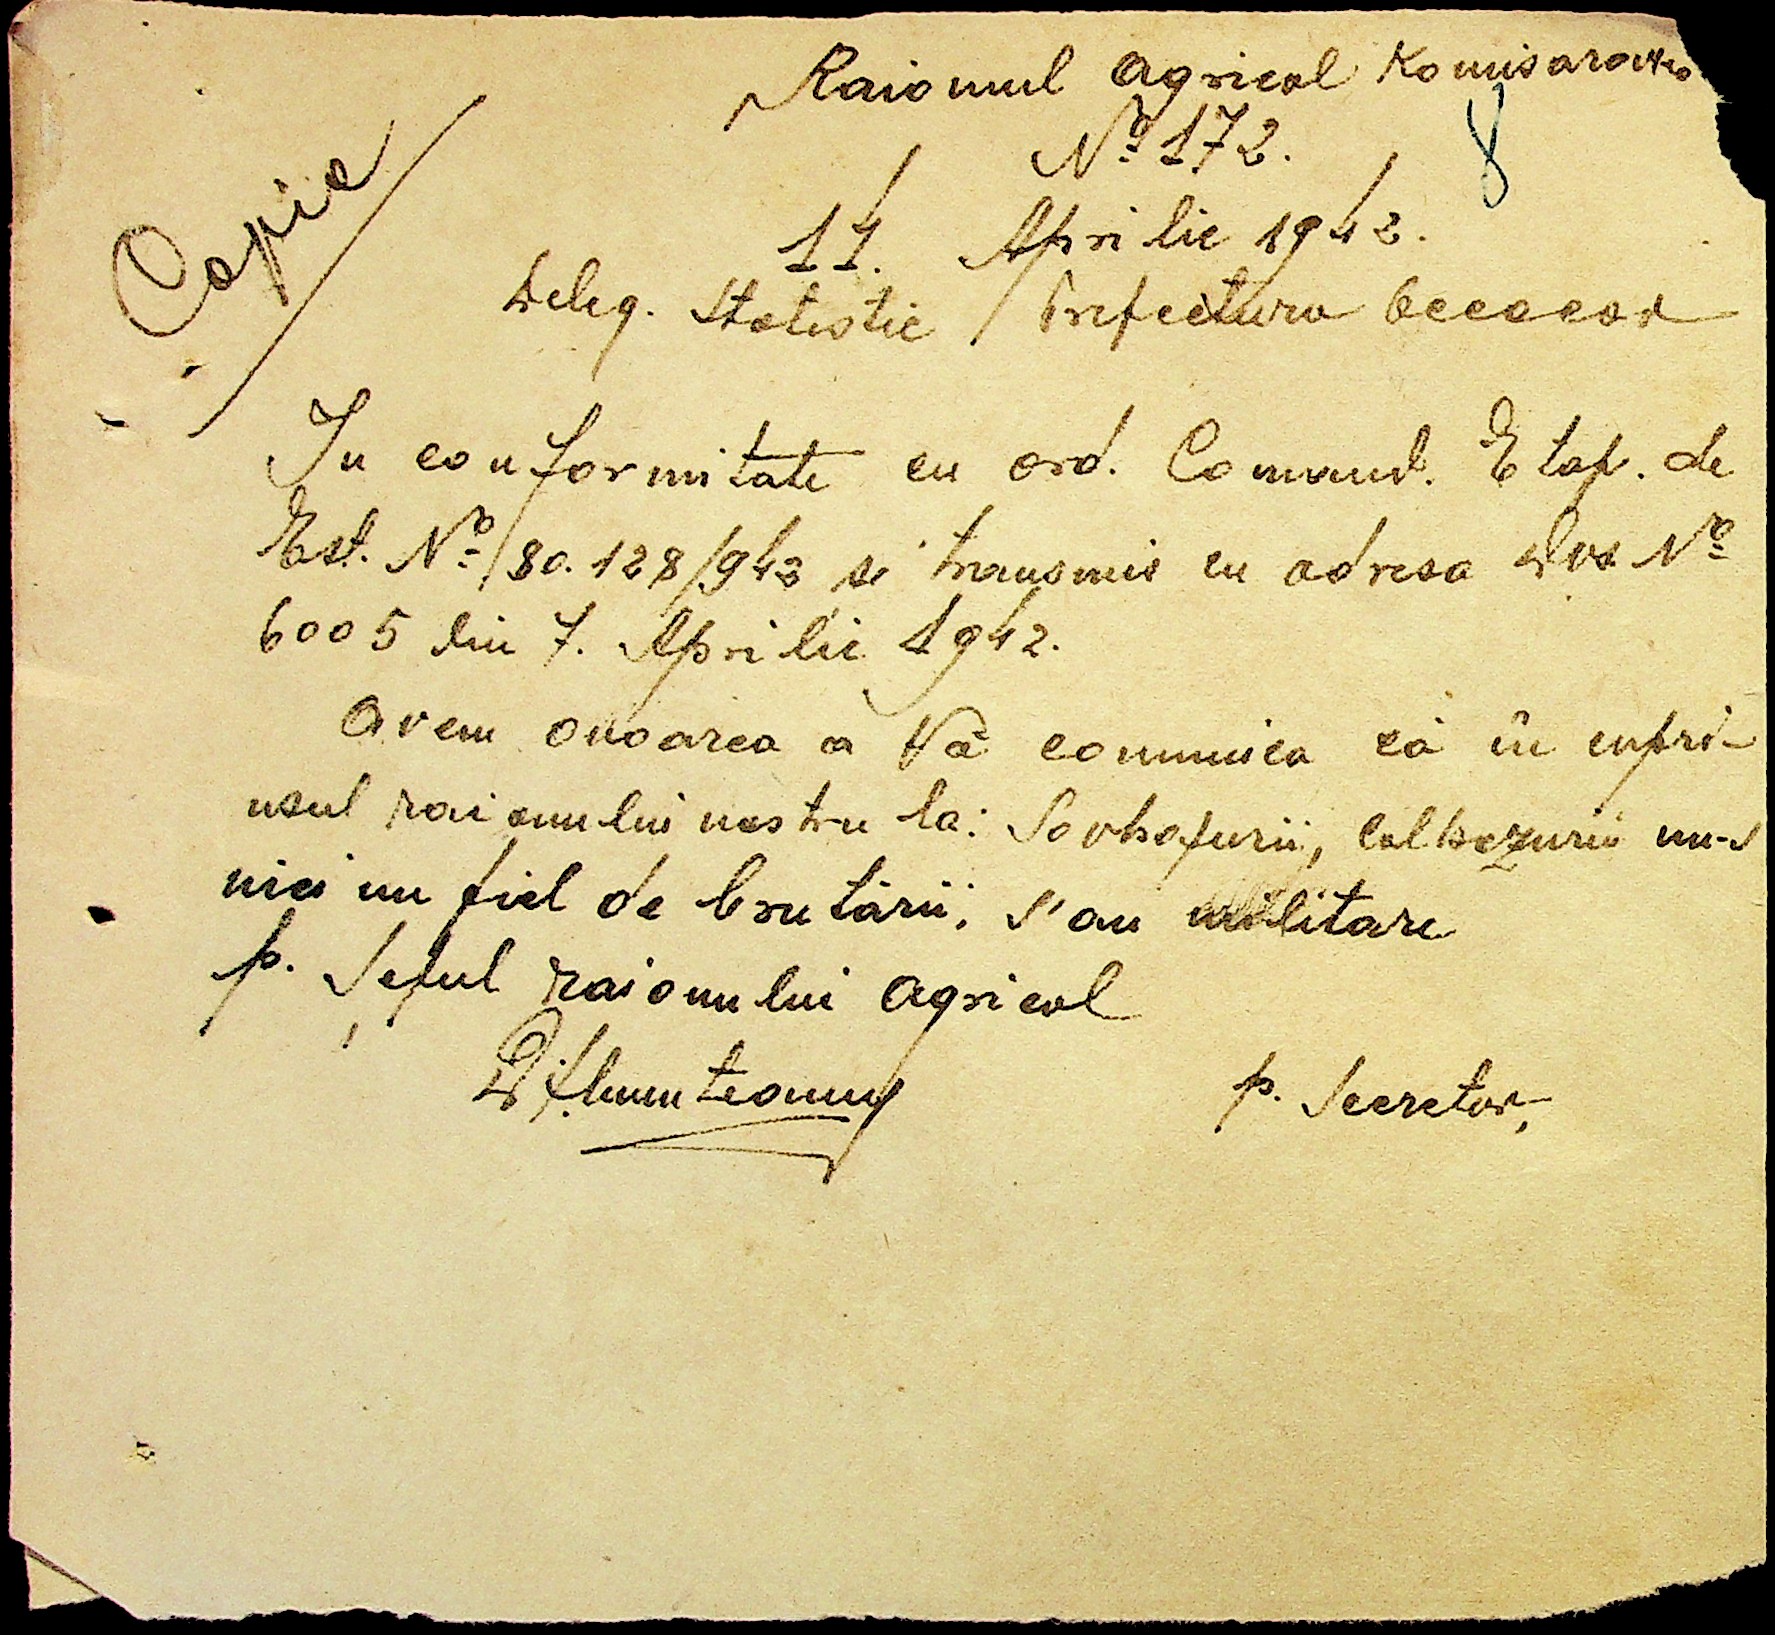 Raionul Agricol Komisarowka
8
No 172.
11. Aprilie 1942.
Copie
Deleg. Statistic / Prefectura Oceacov
In conformitate cu ord. Comand. Etap. de
Est. No 80.128/942 si transmis cu adresa Dvs No
6005 din 7. Aprilie 1942.
Avem onoarea a Vă comunica că în cupri-
nsul raionului nostru la: Sovhozurii, Colhozurii nu-s
nici un fiel de brutării, s'au militare
p. Șeful raionului agricol
Munteanu
p. Secretar,